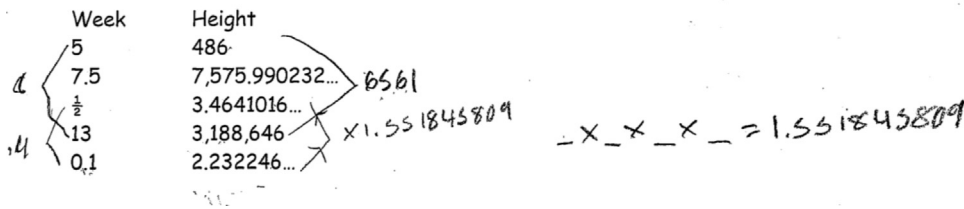 Week Height
5 486
7.5 7,575.990232...
½ 3.4641016...
13 3,188,646
0.1 2.232246...
8
.4
6561
×1.551845809
_×_×_×_ = 1.551845809